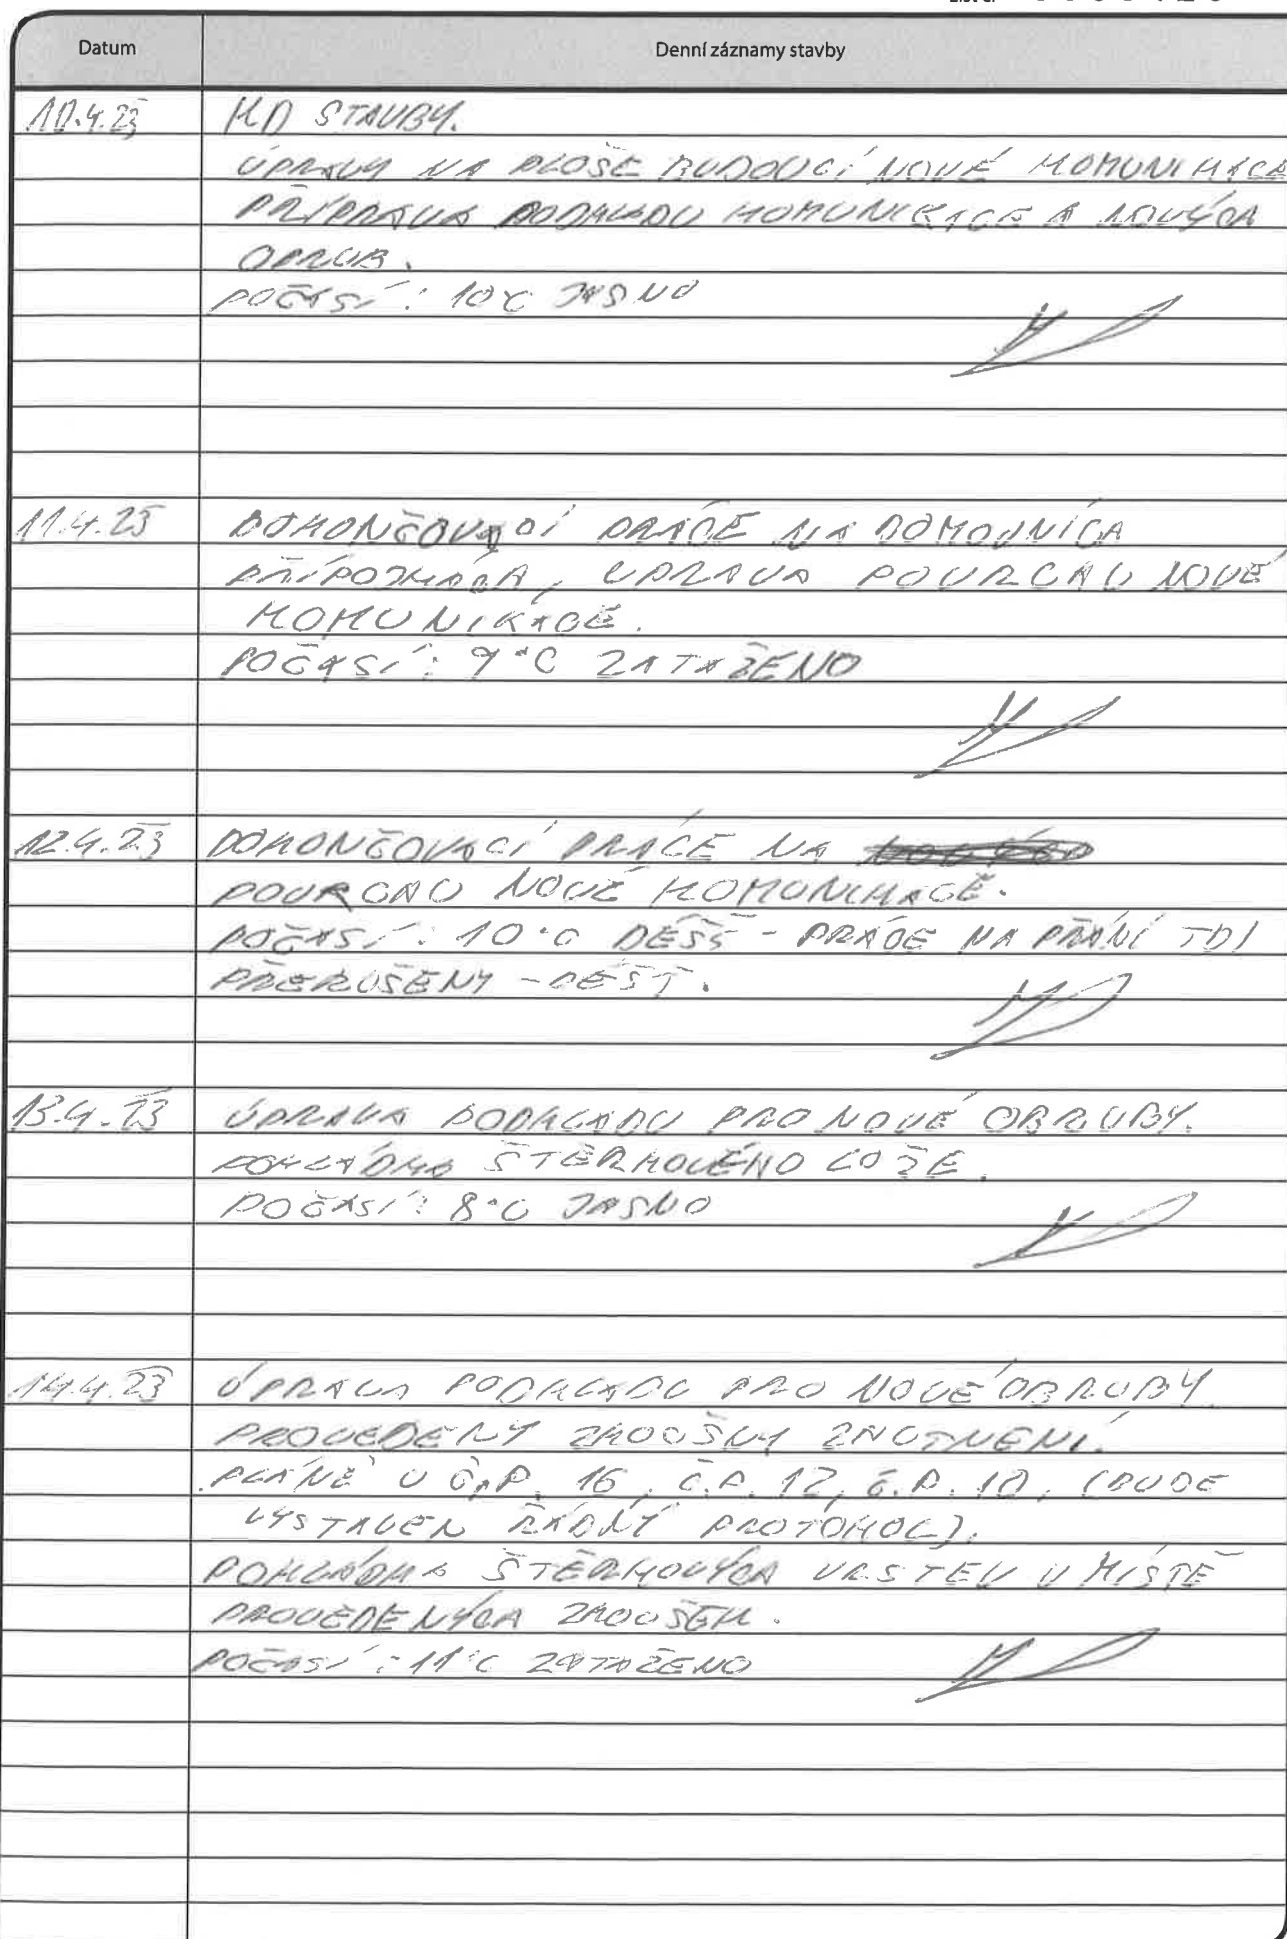 Datum
Denní záznamy stavby
10.4.23
KD STAVBY.
ÚPRAVY NA PLOŠE BUDOUCÍ NOVÉ KOMUNIKACE
PŘÍPRAVA PODKLADU KOMUNIKACE A NOVÝCH
OBRUB.
POČASÍ: 10°C JASNO
11.4.23
DOKONČOVACÍ PRÁCE NA DOMOVNÍCH
PŘÍPOJKÁCH, ÚPRAVA POVRCHU NOVÉ
KOMUNIKACE.
POČASÍ: 9°C ZATAŽENO
12.4.23
DOKONČOVACÍ PRÁCE NA
POVRCHU NOVÉ KOMUNIKACE.
POČASÍ: 10°C DÉŠŤ - PRÁCE NA PŘÁNÍ TDI
PŘERUŠENY - DÉŠŤ.
13.4.23
ÚPRAVA PODKLADU PRO NOVÉ OBRUBY.
POKLÁDKA ŠTĚRKOVÉHO LOŽE.
POČASÍ: 8°C JASNO
14.4.23
ÚPRAVA PODKLADU PRO NOVÉ OBRUBY.
PROVEDENY ZKOUŠKY ZHUTNĚNÍ.
PLÁNĚ U Č.P. 16, Č.P. 12, Č.P. 10, (BUDE
VYSTAVEN ŘÁDNÝ PROTOKOL).
POKLÁDKA ŠTĚRKOVÝCH VRSTEV V MÍSTĚ
PROVEDENÝCH ZKOUŠEK.
POČASÍ: 11°C ZATAŽENO